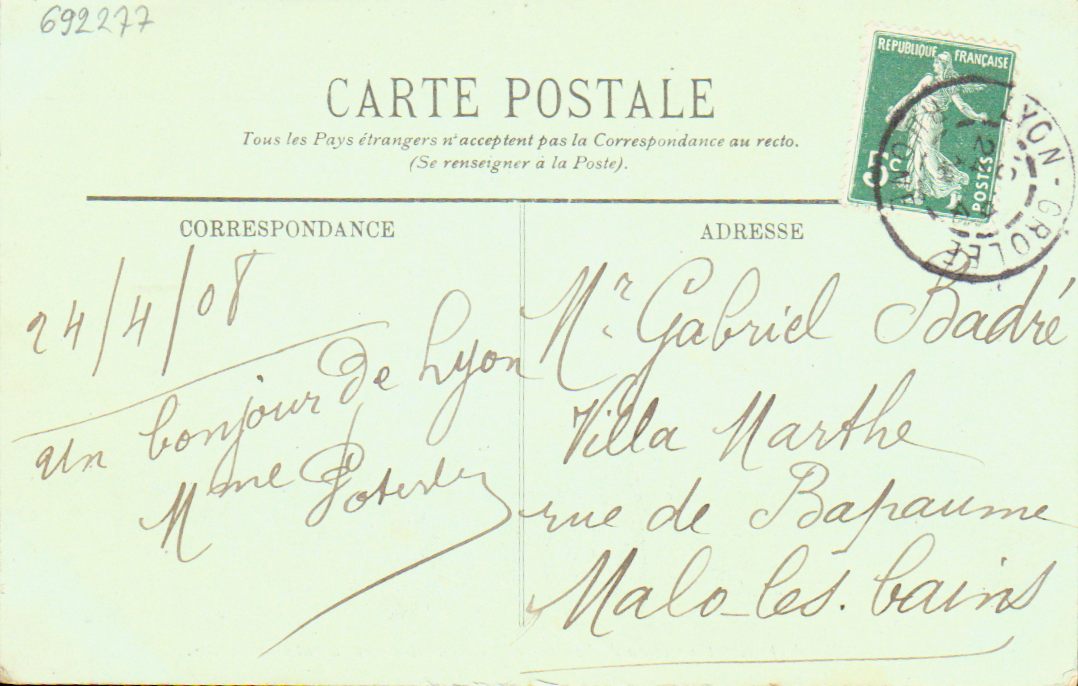 692277
CARTE POSTALE
Tous les Pays étrangers n'acceptent pas la Correspondance au recto.
(Se renseigner à la Poste).
REPUBLIQUE FRANÇAISE
5c
POSTES
LYON-GROLEE
RHONE
CORRESPONDANCE
24/4/08
un bonjour de Lyon
Mme
ADRESSE
Mr. Gabriel Badré
Villa Marthe
rue de Bapaume
Malo-les.bains